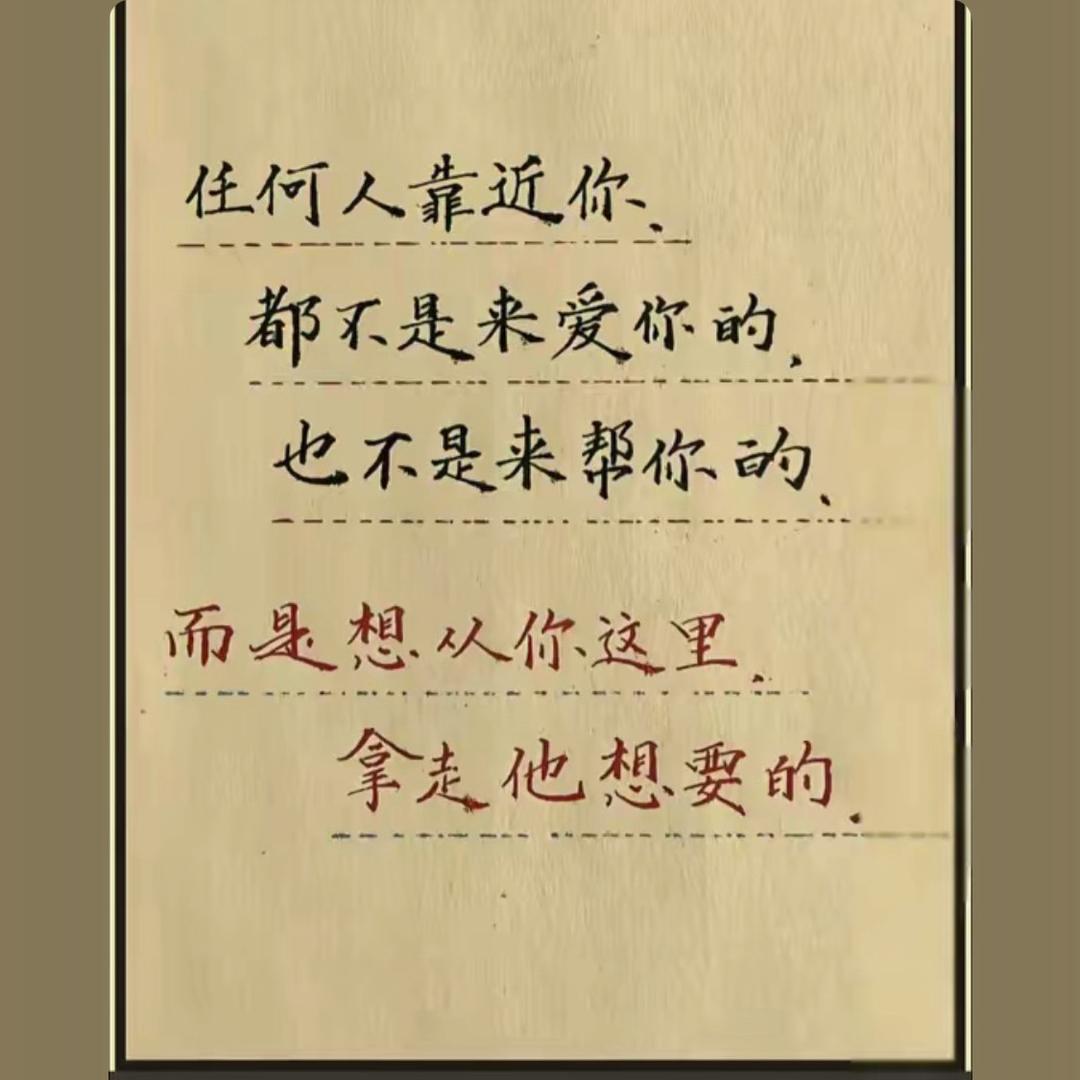 任何人靠近你、
都不是来爱你的、
也不是来帮你的、
而是想从你这里、
拿走他想要的.